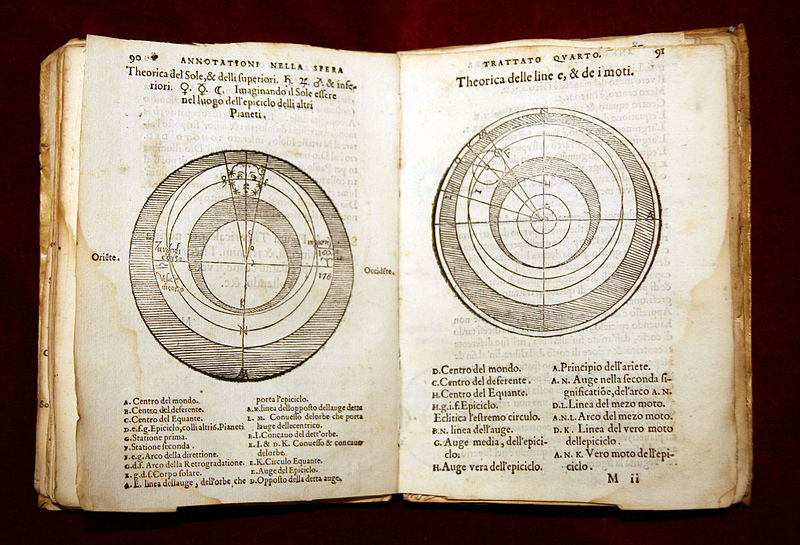 90
ANNOTATIONI NELLA SPERA
Theorica del Sole, & delli superiori. ♄. ♃. ♂. & infe-
riori. ♀. ☿. ☾. Imaginando il Sole essere
nel luogo dell'epiciclo delli altri
Pianeti.
Oriēte.
Occidēte.
A. Centro del mondo.
B. Centro del deferente.
C. Centro del Equante.
D.e.f.g. Epiciclo, colli altri s. Pianeti
G. Statione prima.
F. Statione seconda.
E.e.g. Arco della direttione.
G.d.f. Arco della Retrogradatione.
E.g.d.f. Corpo solare.
A. E. linea dellauge, dell'orbe che
porta l'epiciclo.
A.N. linea dell opposto dell auge detta
L. M. Conuesso delorbe che porta
lauge dellecentrico.
E. I. Concauo del dett'orbe.
E. I. & D. K. Conuesso & concauo
delorbe.
E. K. Circulo Equante.
E. Auge del Epiciclo.
D. Opposto della detta auge.
TRATTATO QVARTO.
91
Theorica delle line e, & de i moti.
D. Centro del mondo.
C. Centro del deferente.
H. Centro del Equante.
H.g.i.f. Epiciclo.
Eclitica l'estremo circulo.
B.N. linea dell'auge.
G. Auge media, dell'epici-
clo.
H. Auge vera dell'epiciclo.
A. Principio dell'ariete.
A. N. Auge nella seconda si-
gnificatiōe, del'arco A. N.
D.L. Linea del mezo moto.
A.N.L. Arco del mezo moto.
D. K. Linea del vero moto
dell epiciclo.
A. N. K. Vero moto dell'epi-
ciclo.
M ii